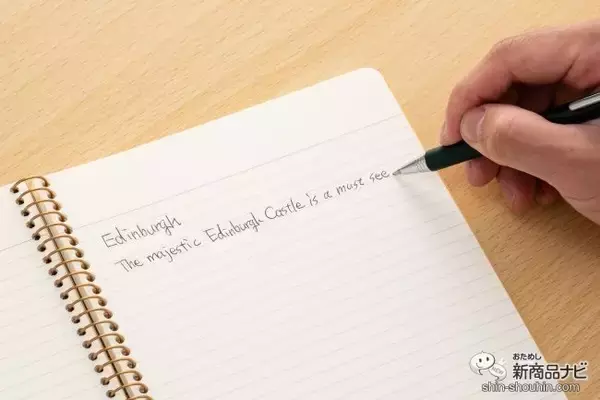 Edinburgh
The majestic Edinburgh Castle is a must see.
おためし
新商品ナビ
shin-shouhin.com